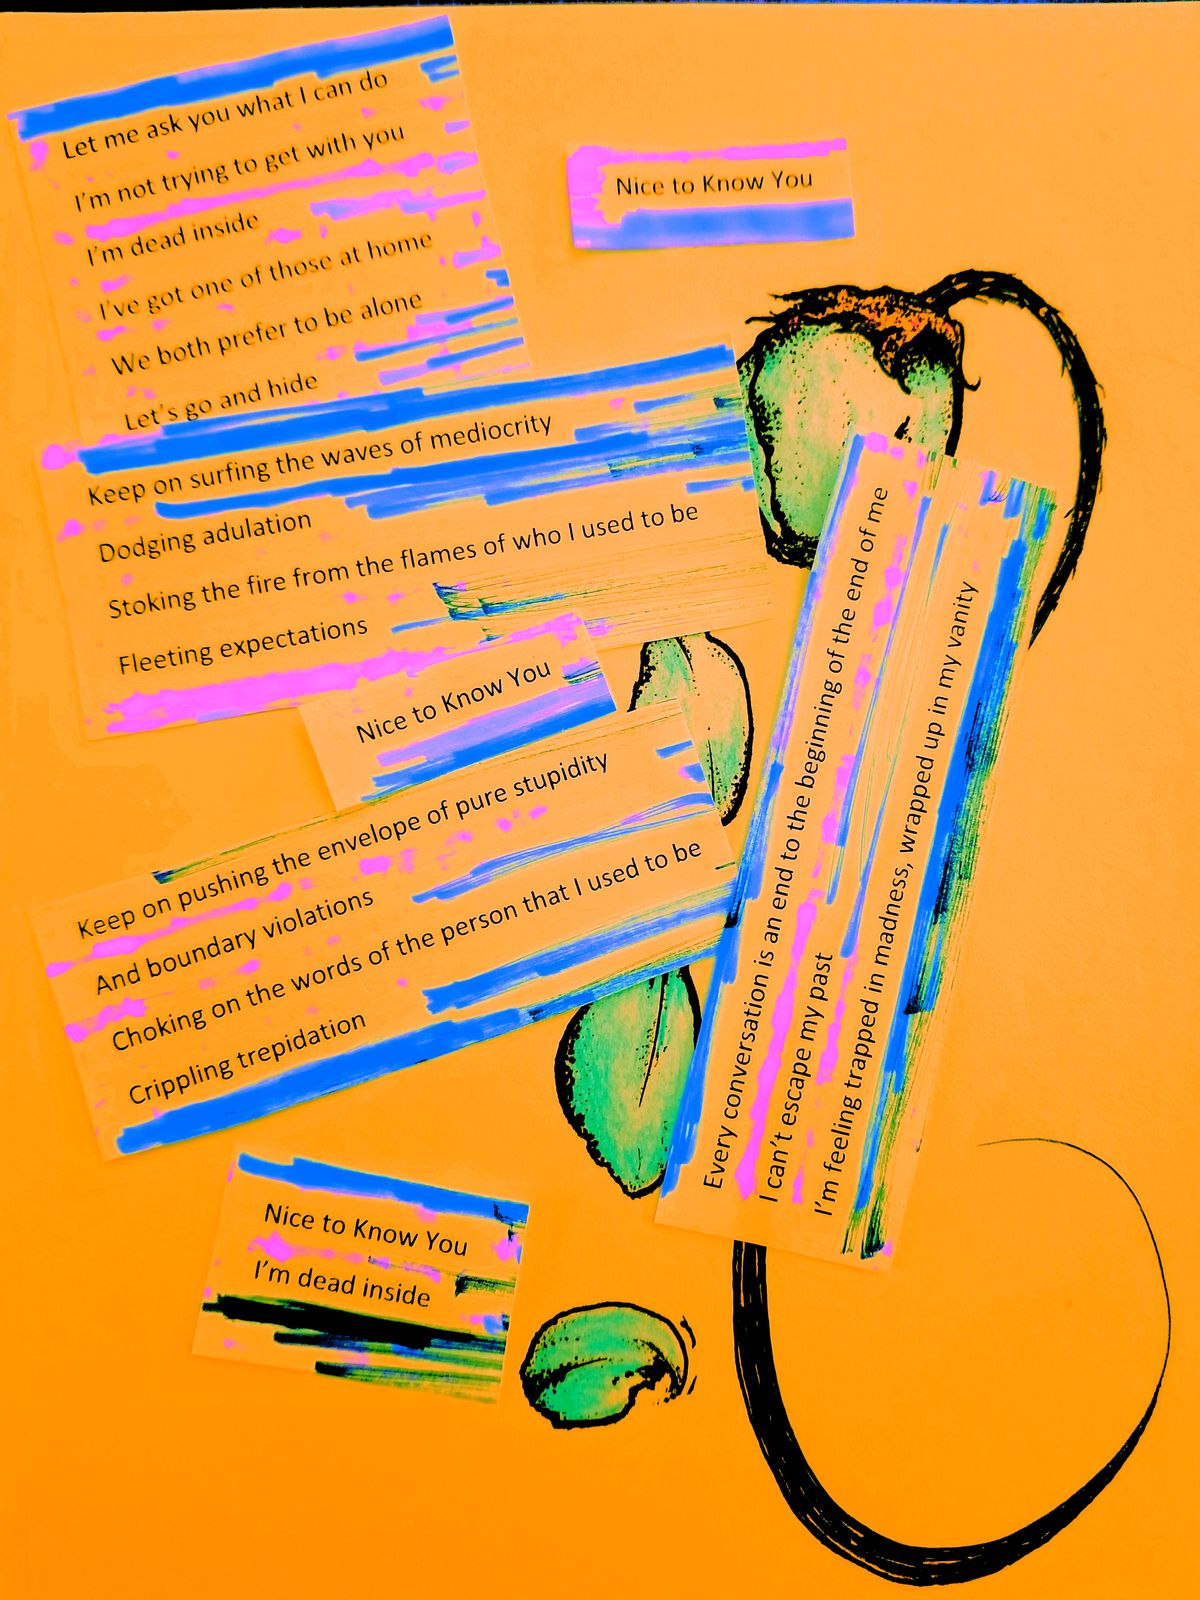 Let me ask you what I can do
I'm not trying to get with you
I'm dead inside
I've got one of those at home
We both prefer to be alone
Let's go and hide
Nice to Know You
Keep on surfing the waves of mediocrity
Dodging adulation
Stoking the fire from the flames of who I used to be
Fleeting expectations
Nice to Know You
Keep on pushing the envelope of pure stupidity
And boundary violations
Choking on the words of the person that I used to be
Crippling trepidation
Every conversation is an end to the beginning of the end of me
I can't escape my past
I'm feeling trapped in madness, wrapped up in my vanity
Nice to Know You
I'm dead inside